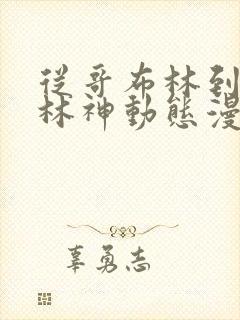 從哥布林到
林神動態漫
辜勇志